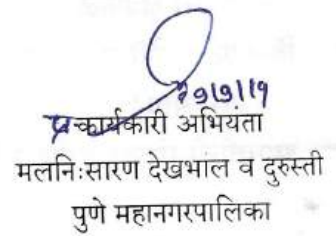 २७/७/१९
प्र-कार्यकारी अभियंता
मलनिःसारण देखभाल व दुरुस्ती
पुणे महानगरपालिका